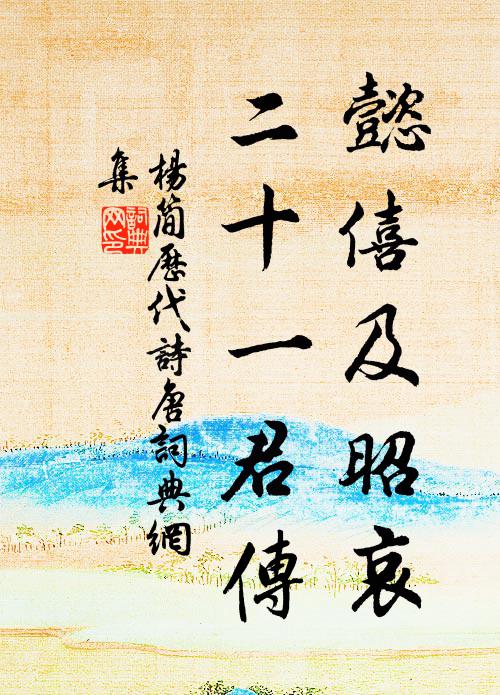 懿僖及昭哀
二十一君傳
楊簡歷代詩唐詞典網
集
詞典網印